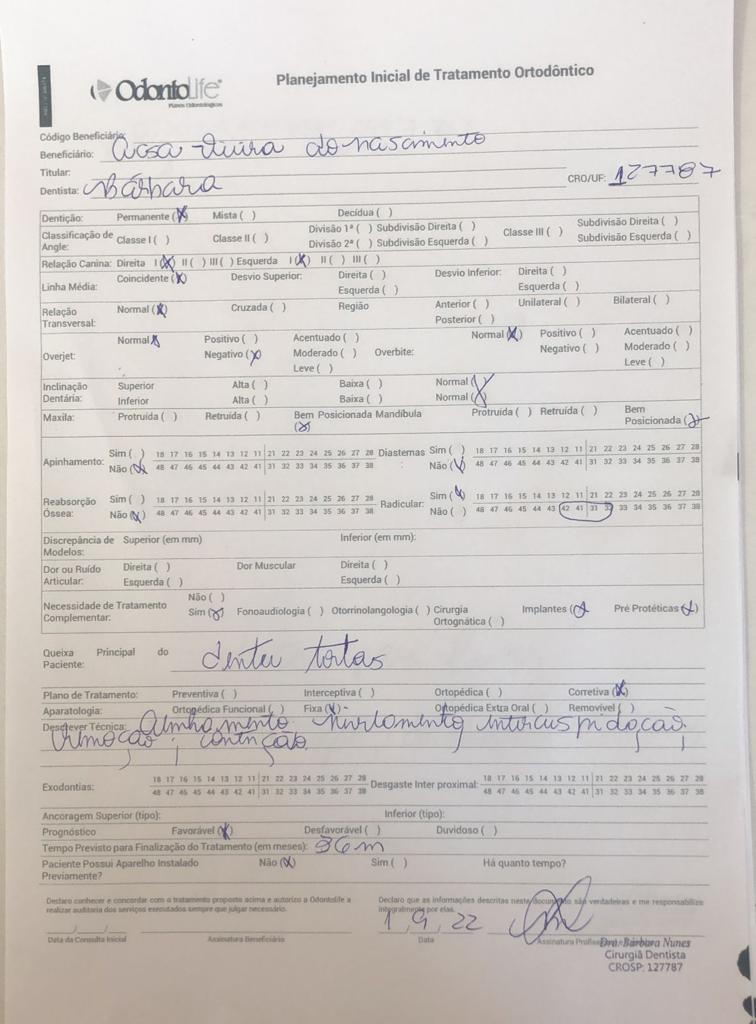 OdontoLife
Planos Odontológicos
Planejamento Inicial de Tratamento Ortodôntico
Código Beneficiário:
Beneficiário: do nascimento
Titular:
Dentista: Bárbara CRO/UF: 127787
Dentição: Permanente (X) Mista ( ) Decídua ( )
Classificação de Angle: Classe I ( ) Classe II ( ) Divisão 1ª ( ) Subdivisão Direita ( ) Classe III ( ) Subdivisão Direita ( )
Divisão 2ª ( ) Subdivisão Esquerda ( ) Subdivisão Esquerda ( )
Relação Canina: Direita I (X) II ( ) III ( ) Esquerda I (X) II ( ) III ( )
Linha Média: Coincidente (X) Desvio Superior: Direita ( ) Desvio Inferior: Direita ( )
Esquerda ( ) Esquerda ( )
Relação Transversal: Normal (X) Cruzada ( ) Região Anterior ( ) Unilateral ( ) Bilateral ( )
Posterior ( )
Normal X Positivo ( ) Acentuado ( ) Normal (X) Positivo ( ) Acentuado ( )
Overjet: Negativo (X) Moderado ( ) Overbite: Negativo ( ) Moderado ( )
Leve ( ) Leve ( )
Inclinação Dentária: Superior Alta ( ) Baixa ( ) Normal (X)
Inferior Alta ( ) Baixa ( ) Normal (X)
Maxila: Protruída ( ) Retruída ( ) Bem Posicionada (X) Mandíbula Protruída ( ) Retruída ( ) Bem Posicionada (X)
Apinhamento: Sim ( ) 18 17 16 15 14 13 12 11 21 22 23 24 25 26 27 28 Diastemas: Sim ( ) 18 17 16 15 14 13 12 11 21 22 23 24 25 26 27 28
Não (X) 48 47 46 45 44 43 42 41 31 32 33 34 35 36 37 38 Não (X) 48 47 46 45 44 43 42 41 31 32 33 34 35 36 37 38
Reabsorção Óssea: Sim ( ) 18 17 16 15 14 13 12 11 21 22 23 24 25 26 27 28 Radicular: Sim (X) 18 17 16 15 14 13 12 11 21 22 23 24 25 26 27 28
Não (X) 48 47 46 45 44 43 42 41 31 32 33 34 35 36 37 38 Não ( ) 48 47 46 45 44 43 42 41 31 32 33 34 35 36 37 38
Discrepância de Modelos: Superior (em mm) Inferior (em mm):
Dor ou Ruído Articular: Direita ( ) Dor Muscular Direita ( )
Esquerda ( ) Esquerda ( )
Necessidade de Tratamento Complementar: Não ( )
Sim (X) Fonoaudiologia ( ) Otorrinolangologia ( ) Cirurgia Ortognática ( ) Implantes (X) Pré Protéticas (X)
Queixa Principal do Paciente: tortos
Plano de Tratamento: Preventiva ( ) Interceptiva ( ) Ortopédica ( ) Corretiva (X)
Aparatologia: Ortopédica Funcional ( ) Fixa (X) Ortopédica Extra Oral ( ) Removível ( )
Descrever Técnica: Alinhamento, nivelamento, intercuspidação,
remoção, contenção.
Exodontias: 18 17 16 15 14 13 12 11 21 22 23 24 25 26 27 28 Desgaste Inter proximal: 18 17 16 15 14 13 12 11 21 22 23 24 25 26 27 28
48 47 46 45 44 43 42 41 31 32 33 34 35 36 37 38 48 47 46 45 44 43 42 41 31 32 33 34 35 36 37 38
Ancoragem Superior (tipo): Inferior (tipo):
Prognóstico Favorável (X) Desfavorável ( ) Duvidoso ( )
Tempo Previsto para Finalização do Tratamento (em meses): 36 m
Paciente Possui Aparelho Instalado Previamente? Não (X) Sim ( ) Há quanto tempo?
Declaro conhecer e concordar com o tratamento proposto acima e autorizo a Odontolife a realizar auditoria dos serviços executados sempre que julgar necessário.
Declaro que as informações descritas neste documento são verdadeiras e me responsabilizo integralmente por elas.
1 9 22
Data da Consulta Inicial Assinatura Beneficiário Data Assinatura
Dra. Bárbara Nunes
Cirurgiã Dentista
CROSP: 127787